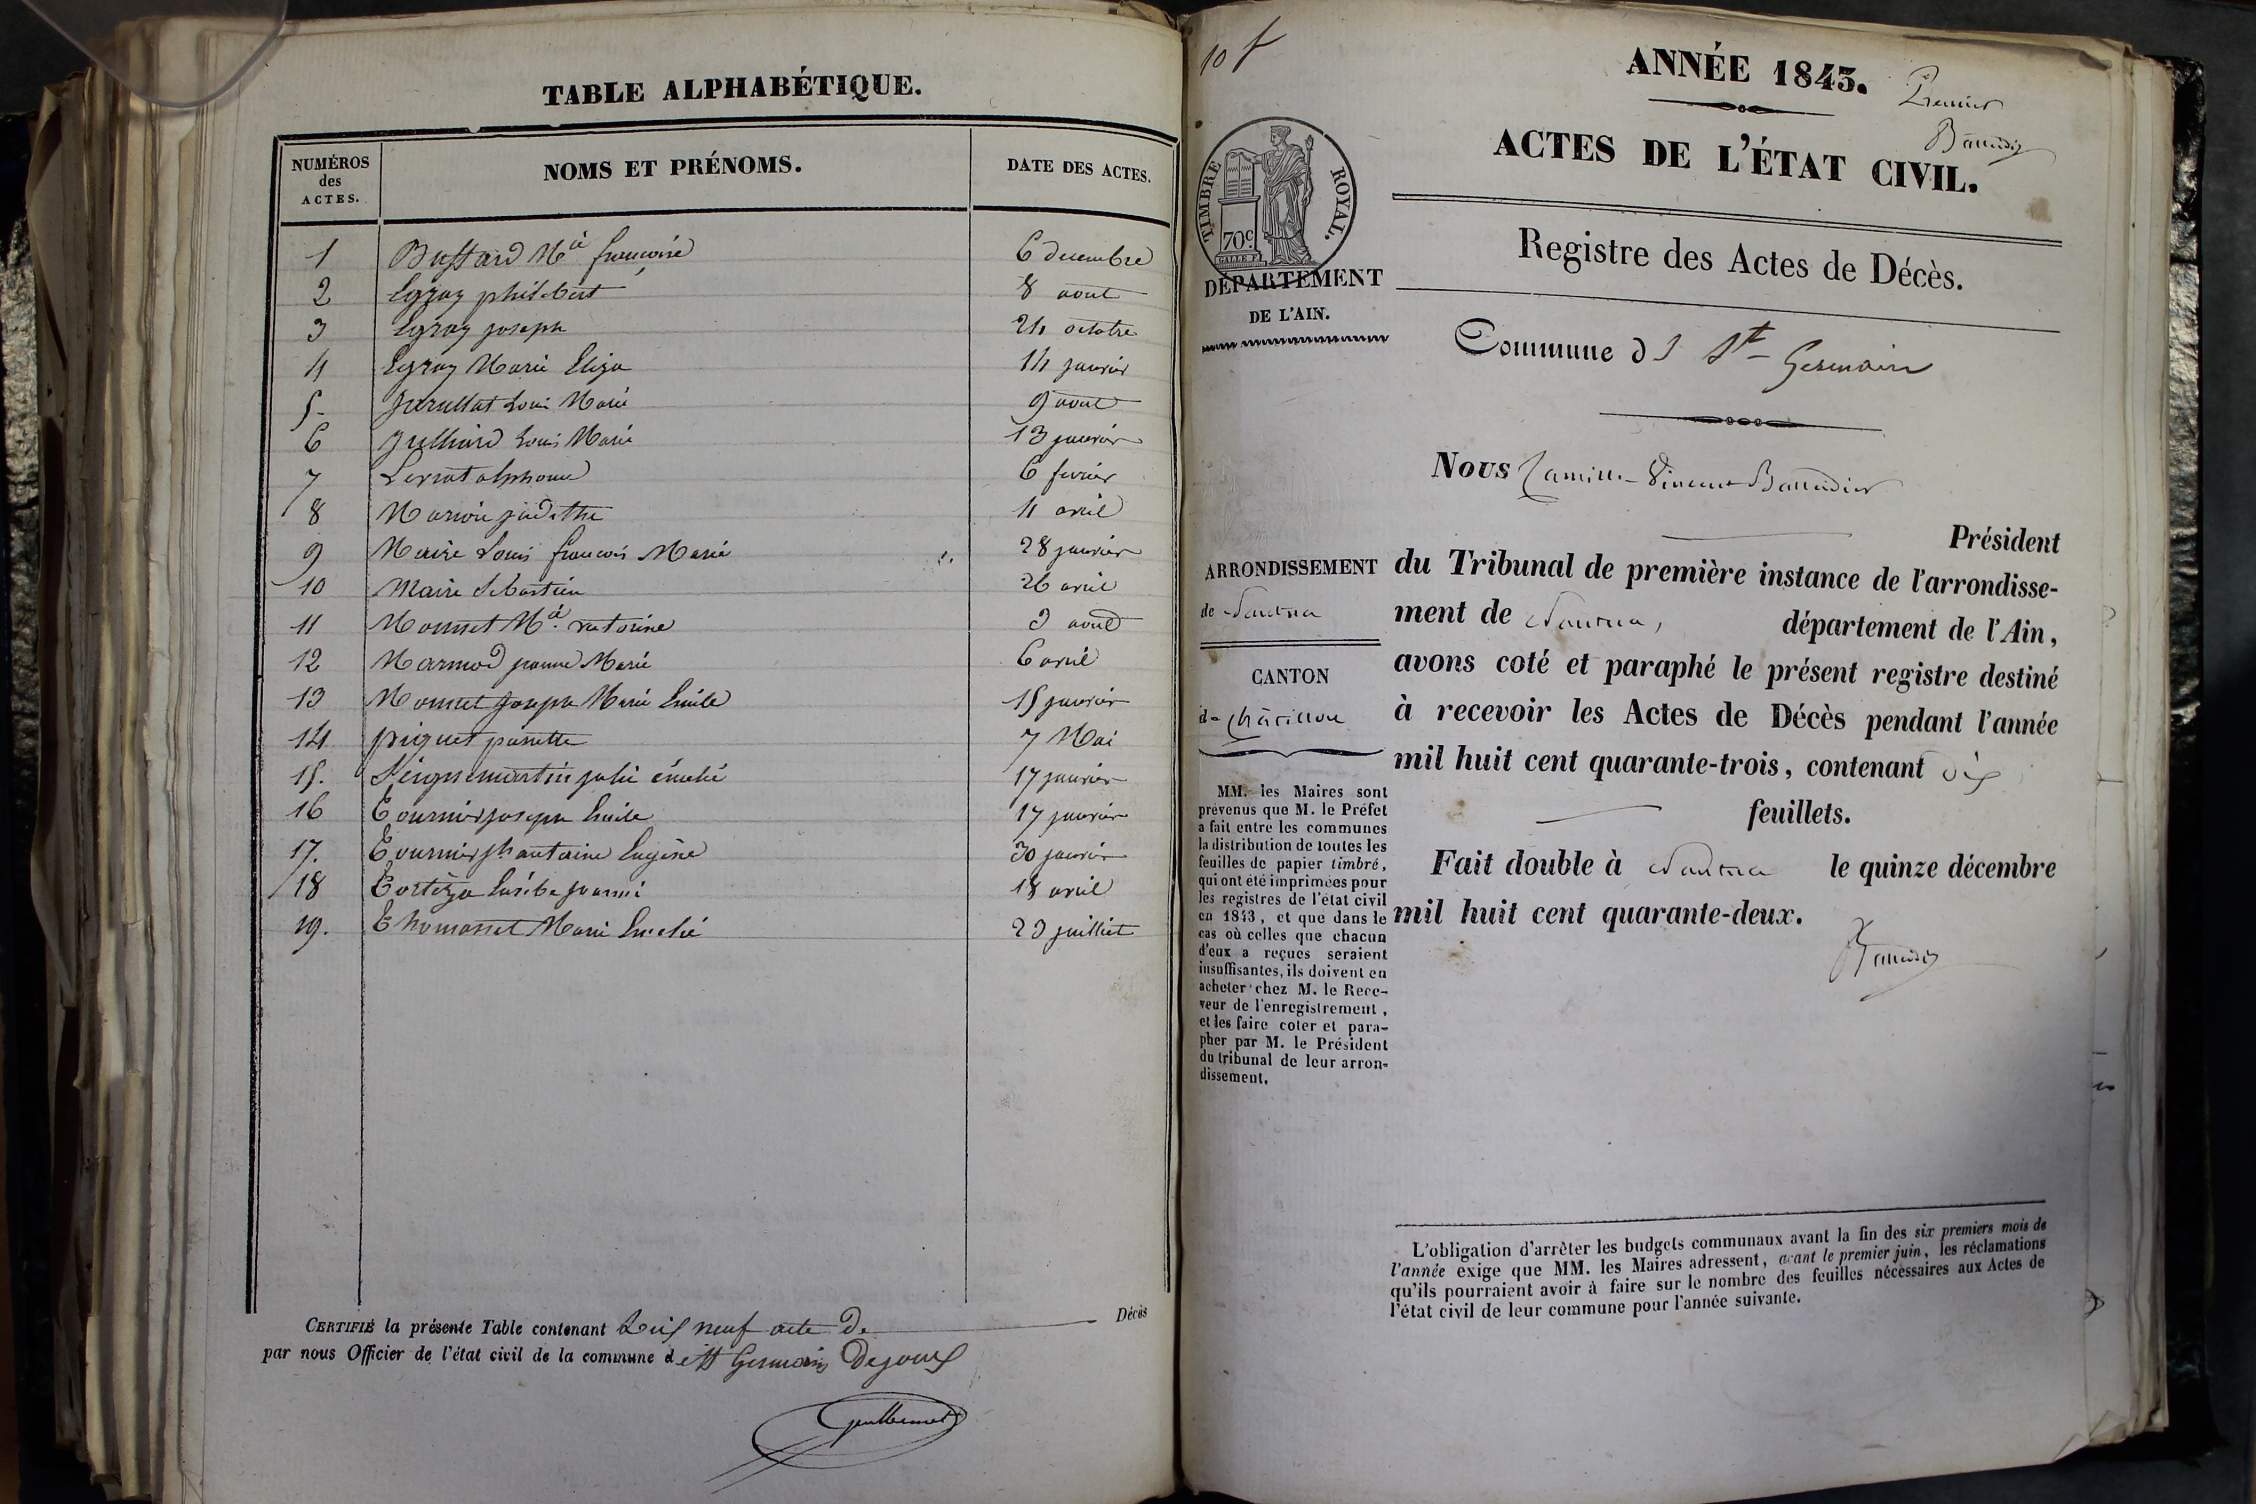 TABLE ALPHABÉTIQUE.
NUMÉROS des ACTES. NOMS ET PRÉNOMS. DATE DES ACTES.
1 Buffard Mie francoise 6 decembre
2 Egraz philibert 8 aout
3 Egraz joseph 24 octobre
4 Egraz Marie Eliza 14 janvier
5 Louis Marie 9 aout
6 Julliard Louis Marie 13 janvier
7 Levrat alphonse 6 fevrier
8 Marion judithe 4 avril
9 Maire Louis francois Marie 28 janvier
10 Maire Sebastien 26 avril
11 Mie 3 aout
12 Marmod jeanne Marie 6 avril
13 Joseph Marie Emile 15 janvier
14 piquet 7 Mai
15. Seignemartin julie émelie 17 janvier
16 Tournier joseph Emile 17 janvier
17. Tournier jh antoine Eugène 30 janvier
18 18 avril
19. Thomasset Marie Emelie 23 juillet
CERTIFIÉ la présente Table contenant Dix neuf acte De Décès
par nous Officier de l'état civil de la commune de St Germain Dejoux
10 f
ANNÉE 1843.
Premier
Baudier
ACTES DE L'ÉTAT CIVIL.
TIMBRE ROYAL.
70c
Registre des Actes de Décès.
DÉPARTEMENT
DE L'AIN.
Commune de St Germain
Nous Camille Vincent
Président
ARRONDISSEMENT
de Nantua
du Tribunal de première instance de l'arrondisse-
ment de Nantua, département de l'Ain,
avons coté et paraphé le présent registre destiné
à recevoir les Actes de Décès pendant l'année
mil huit cent quarante-trois, contenant dix
feuillets.
CANTON
de Châtillon
MM. les Maires sont
prévenus que M. le Préfet
a fait entre les communes
la distribution de toutes les
feuilles de papier timbré,
qui ont été imprimées pour
les registres de l'état civil
en 1843, et que dans le
cas où celles que chacun
d'eux a reçues seraient
insuffisantes, ils doivent en
acheter chez M. le Rece-
veur de l'enregistrement,
et les faire coter et para-
pher par M. le Président
du tribunal de leur arron-
dissement.
Fait double à Nantua le quinze décembre
mil huit cent quarante-deux.
L'obligation d'arrêter les budgets communaux avant la fin des six premiers mois de
l'année exige que MM. les Maires adressent, avant le premier juin, les réclamations
qu'ils pourraient avoir à faire sur le nombre des feuilles nécessaires aux Actes de
l'état civil de leur commune pour l'année suivante.